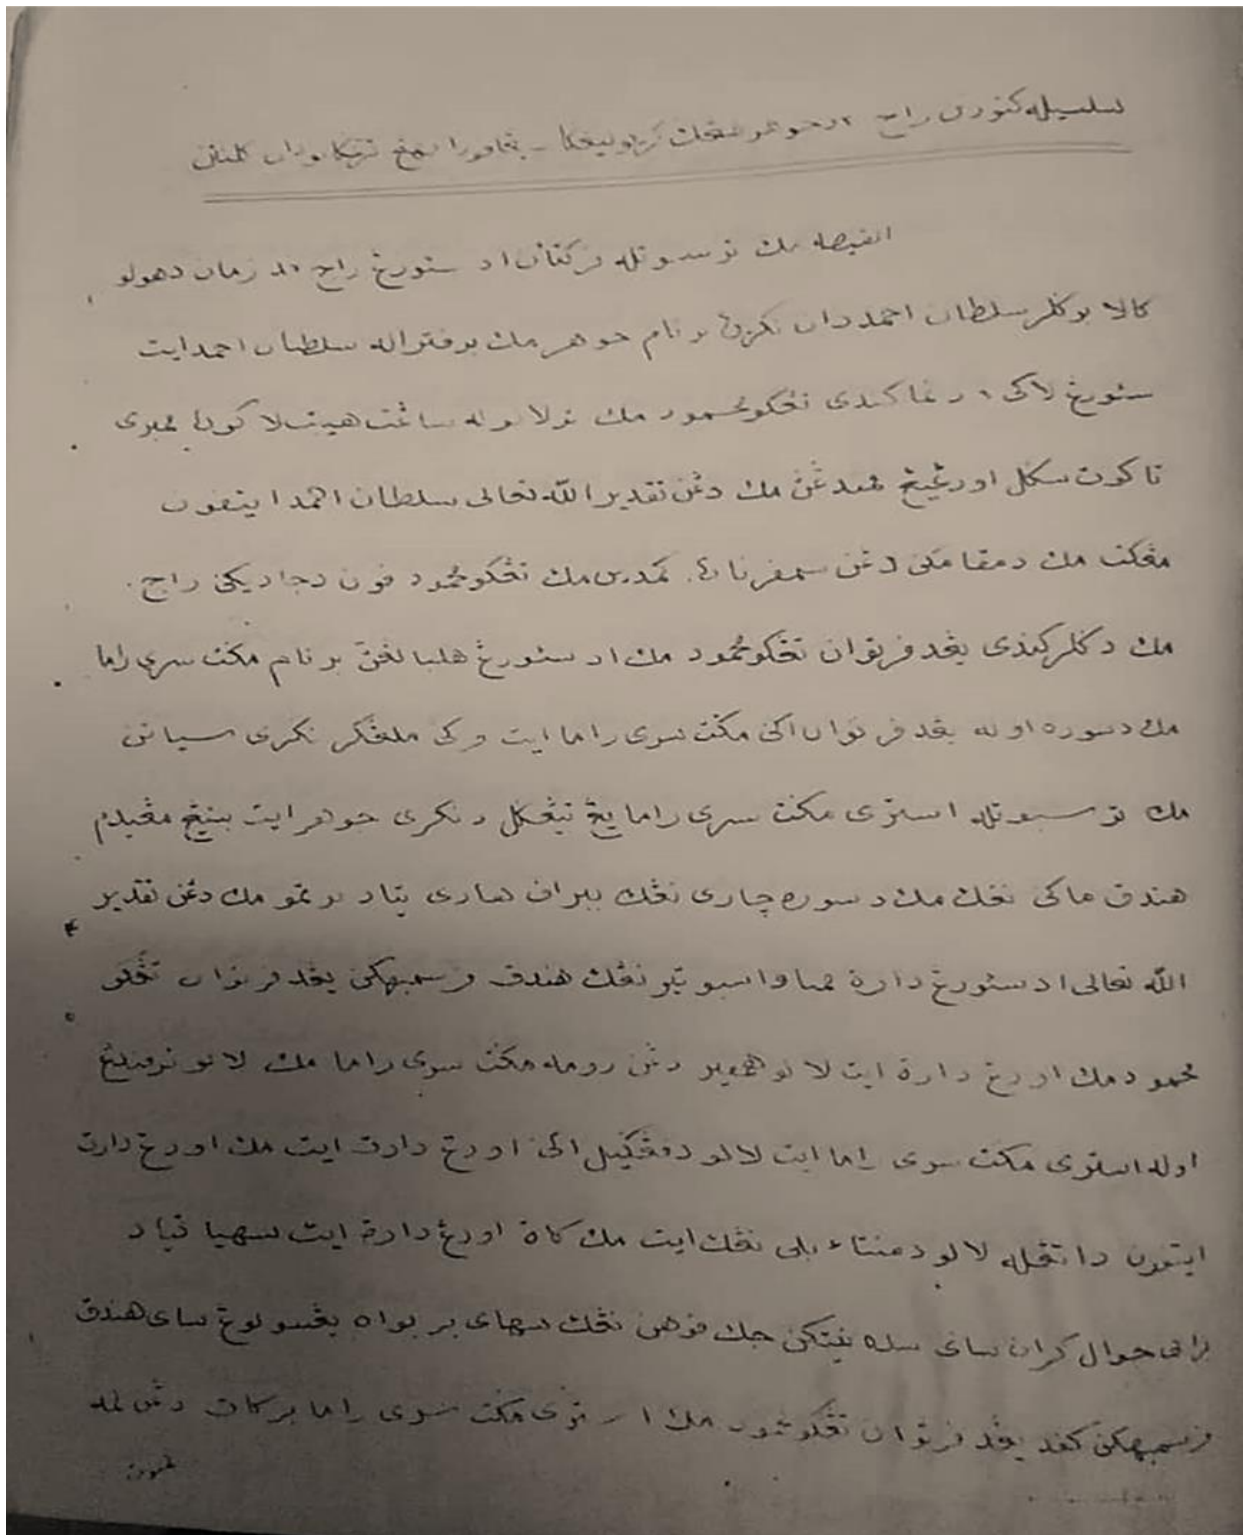 سلسيله كتورن راج
القيصه مك ترسبوتله فركتأن اد سئورڠ راج دزمان دهولو
كالا بركلر سلطان احمد دان نكرين برنام جوهر مك برفتراله سلطان احمد ايت
سئورڠ لاكي٢ دنماكندي تڠكو محمود مك ترلالوله ساڠت هيبت لاكون ممبري
تاكوت سكل اورڠ يڠ ممندڠن مك دڠن تقدير الله تعالى سلطان احمد ايتفون
مڠكت مك دمقامكن دڠن سمفرنان. كمدين مك تڠكو محمود فون دجاديكن راج.
مك دكلركندي يڠد فرتوان تڠكو محمود مك اد سئورڠ هلبالڠن برنام مكت سري راما
مك دسوره اوله يڠد فرتوان اكن مكت سري راما ايت فركي ملڠكر نكري سياتن
مك ترسبوتله استري مكت سري راما يڠ تيڠكل د نكري جوهر ايت بنيڠ مڠيدم
هندق ماكن نڠك مك د سوره چاري نڠك ببراف هاري تياد برتمو مك دڠن تقدير
الله تعالى اد سئورڠ دارة ممباوا سبوتير نڠك هندق فرسمبهكن يڠد فرتوان تڠكو
محمود مك اورڠ دارة ايت لالو همفير دڠن رومه مكت سري راما مك لالو ترفندڠ
اوله استري مكت سري راما ايت لالو دفڠكيل اكن اورڠ دارة ايت مك اورڠ دارة
ايتفون داتڠله لالو دمنتاء بلي نڠك ايت مك كات اورڠ دارة ايت سهيا تياد
براني جوال كران ساي سده نيتكن جك فوهن نڠك سهاي بربواه يڠ سولوڠ ساي هندق
فرسمبهكن كفد يڠد فرتوان تڠكو محمود مك استري مكت سري راما بركات دڠن لمه